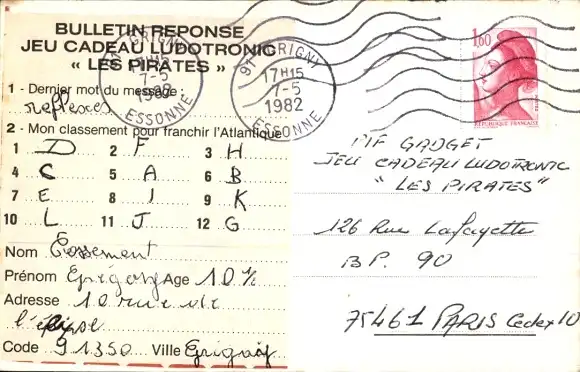 BULLETIN REPONSE
JEU CADEAU LUDOTRONIC
« LES PIRATES »
1 - Dernier mot du message :
reflexes
2 - Mon classement pour franchir l'Atlantique
1 D 2 F 3 H
4 C 5 A 6 B
7 E 8 I 9 K
10 L 11 J 12 G
Nom Fossement
Prénom Age 10 ½
Adresse 10 rue de
Code 91350 Ville Grigny
91 GRIGNY
17H15
7-5
1982
ESSONNE
91 GRIGNY
17H15
7-5
1982
ESSONNE
1,60
REPUBLIQUE FRANÇAISE
PIF GADGET
JEU CADEAU LUDOTRONIC
"LES PIRATES"
126 Rue Lafayette
B.P. 90
75461 PARIS Cedex 10